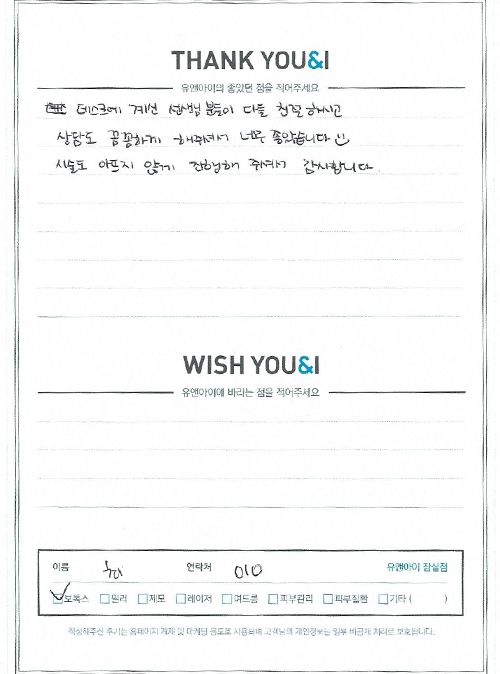 THANK YOU&I
유앤아이의 좋았던 점을 적어주세요
데스크에 계신 선생님 분들이 다들 친절하시고
상담도 꼼꼼하게 해주셔서 너무 좋았습니다
시술도 아프지 않게 진행해 주셔서 감사합니다.
WISH YOU&I
유앤아이에 바라는 점을 적어주세요
이름 연락처 010 유앤아이 잠실점
보톡스 필러 제모 레이저 여드름 피부관리 피부질환 기타 ( )
작성해주신 후기는 홈페이지 게재 및 마케팅 용도로 사용되며 고객님의 개인정보는 일부 비공개 처리로 보호됩니다.